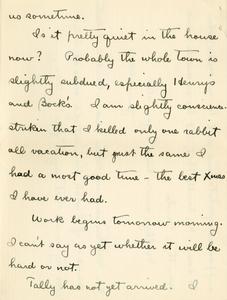 us sometime.
Is it pretty quiet in the house
now? Probably the whole town is
slightly subdued, especially Henry's
and Bock's. I am slightly conscience-
striken that I killed only one rabbit
all vacation, but just the same I
had a most good time - the best Xmas
I have ever had.
Work begins tomorrow morning.
I can't say as yet whether it will be
hard or not.
Tally has not yet arrived. I